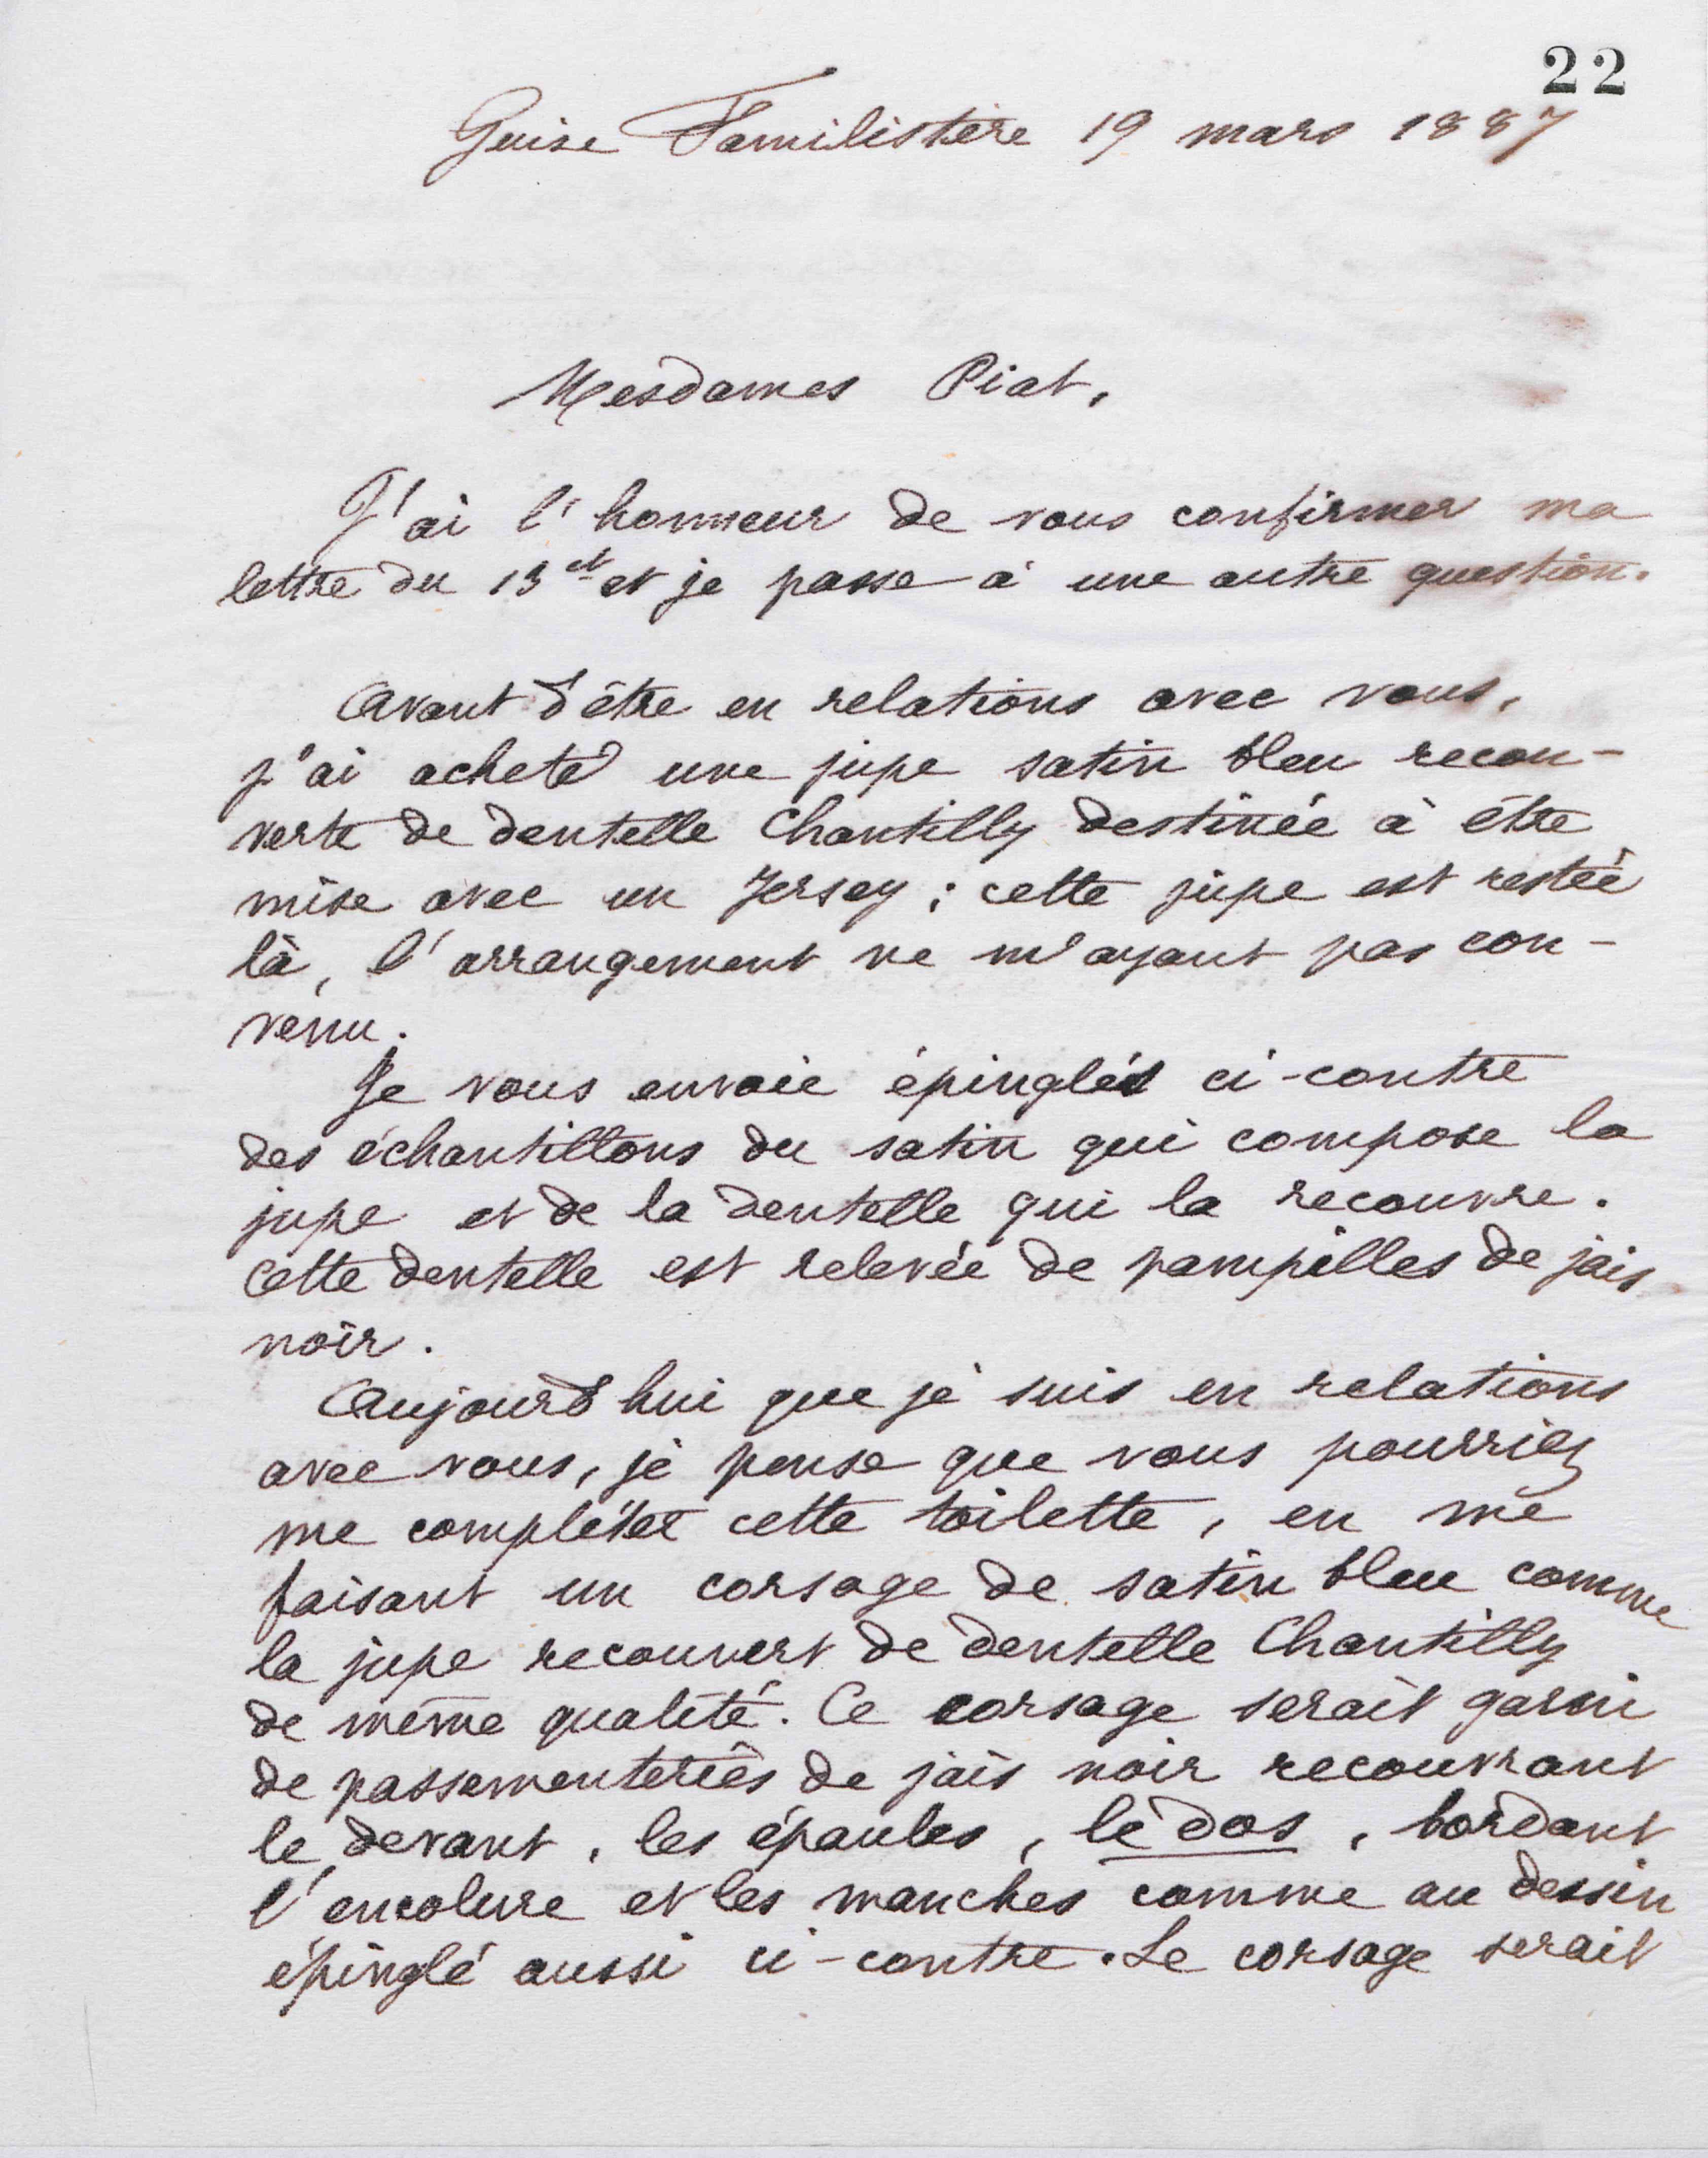 22
Guise Familistère 19 mars 1887
Mesdames Piat,
J'ai l'honneur de vous confirmer ma
lettre du 13 ct et je passe à une autre question.
Avant d'être en relations avec vous,
j'ai acheté une jupe satin bleu recou-
verte de dentelle Chantilly destinée à être
mise avec un Jersey ; cette jupe est restée
là, l'arrangement ne m'ayant pas con-
venu.
Je vous envoie épinglés ci-contre
des échantillons du satin qui compose la
jupe et de la dentelle qui la recouvre.
Cette dentelle est relevée de pampilles de jais
noir.
Aujourd'hui que je suis en relations
avec vous, je pense que vous pourriez
me compléter cette toilette, en me
faisant un corsage de satin bleu comme
la jupe recouvert de dentelle Chantilly
de même qualité. Ce corsage serait garni
de passementeries de jais noir recouvrant
le devant, les épaules, le dos, bordant
l'encolure et les manches comme au dessin
épinglé aussi ci-contre. Le corsage serait